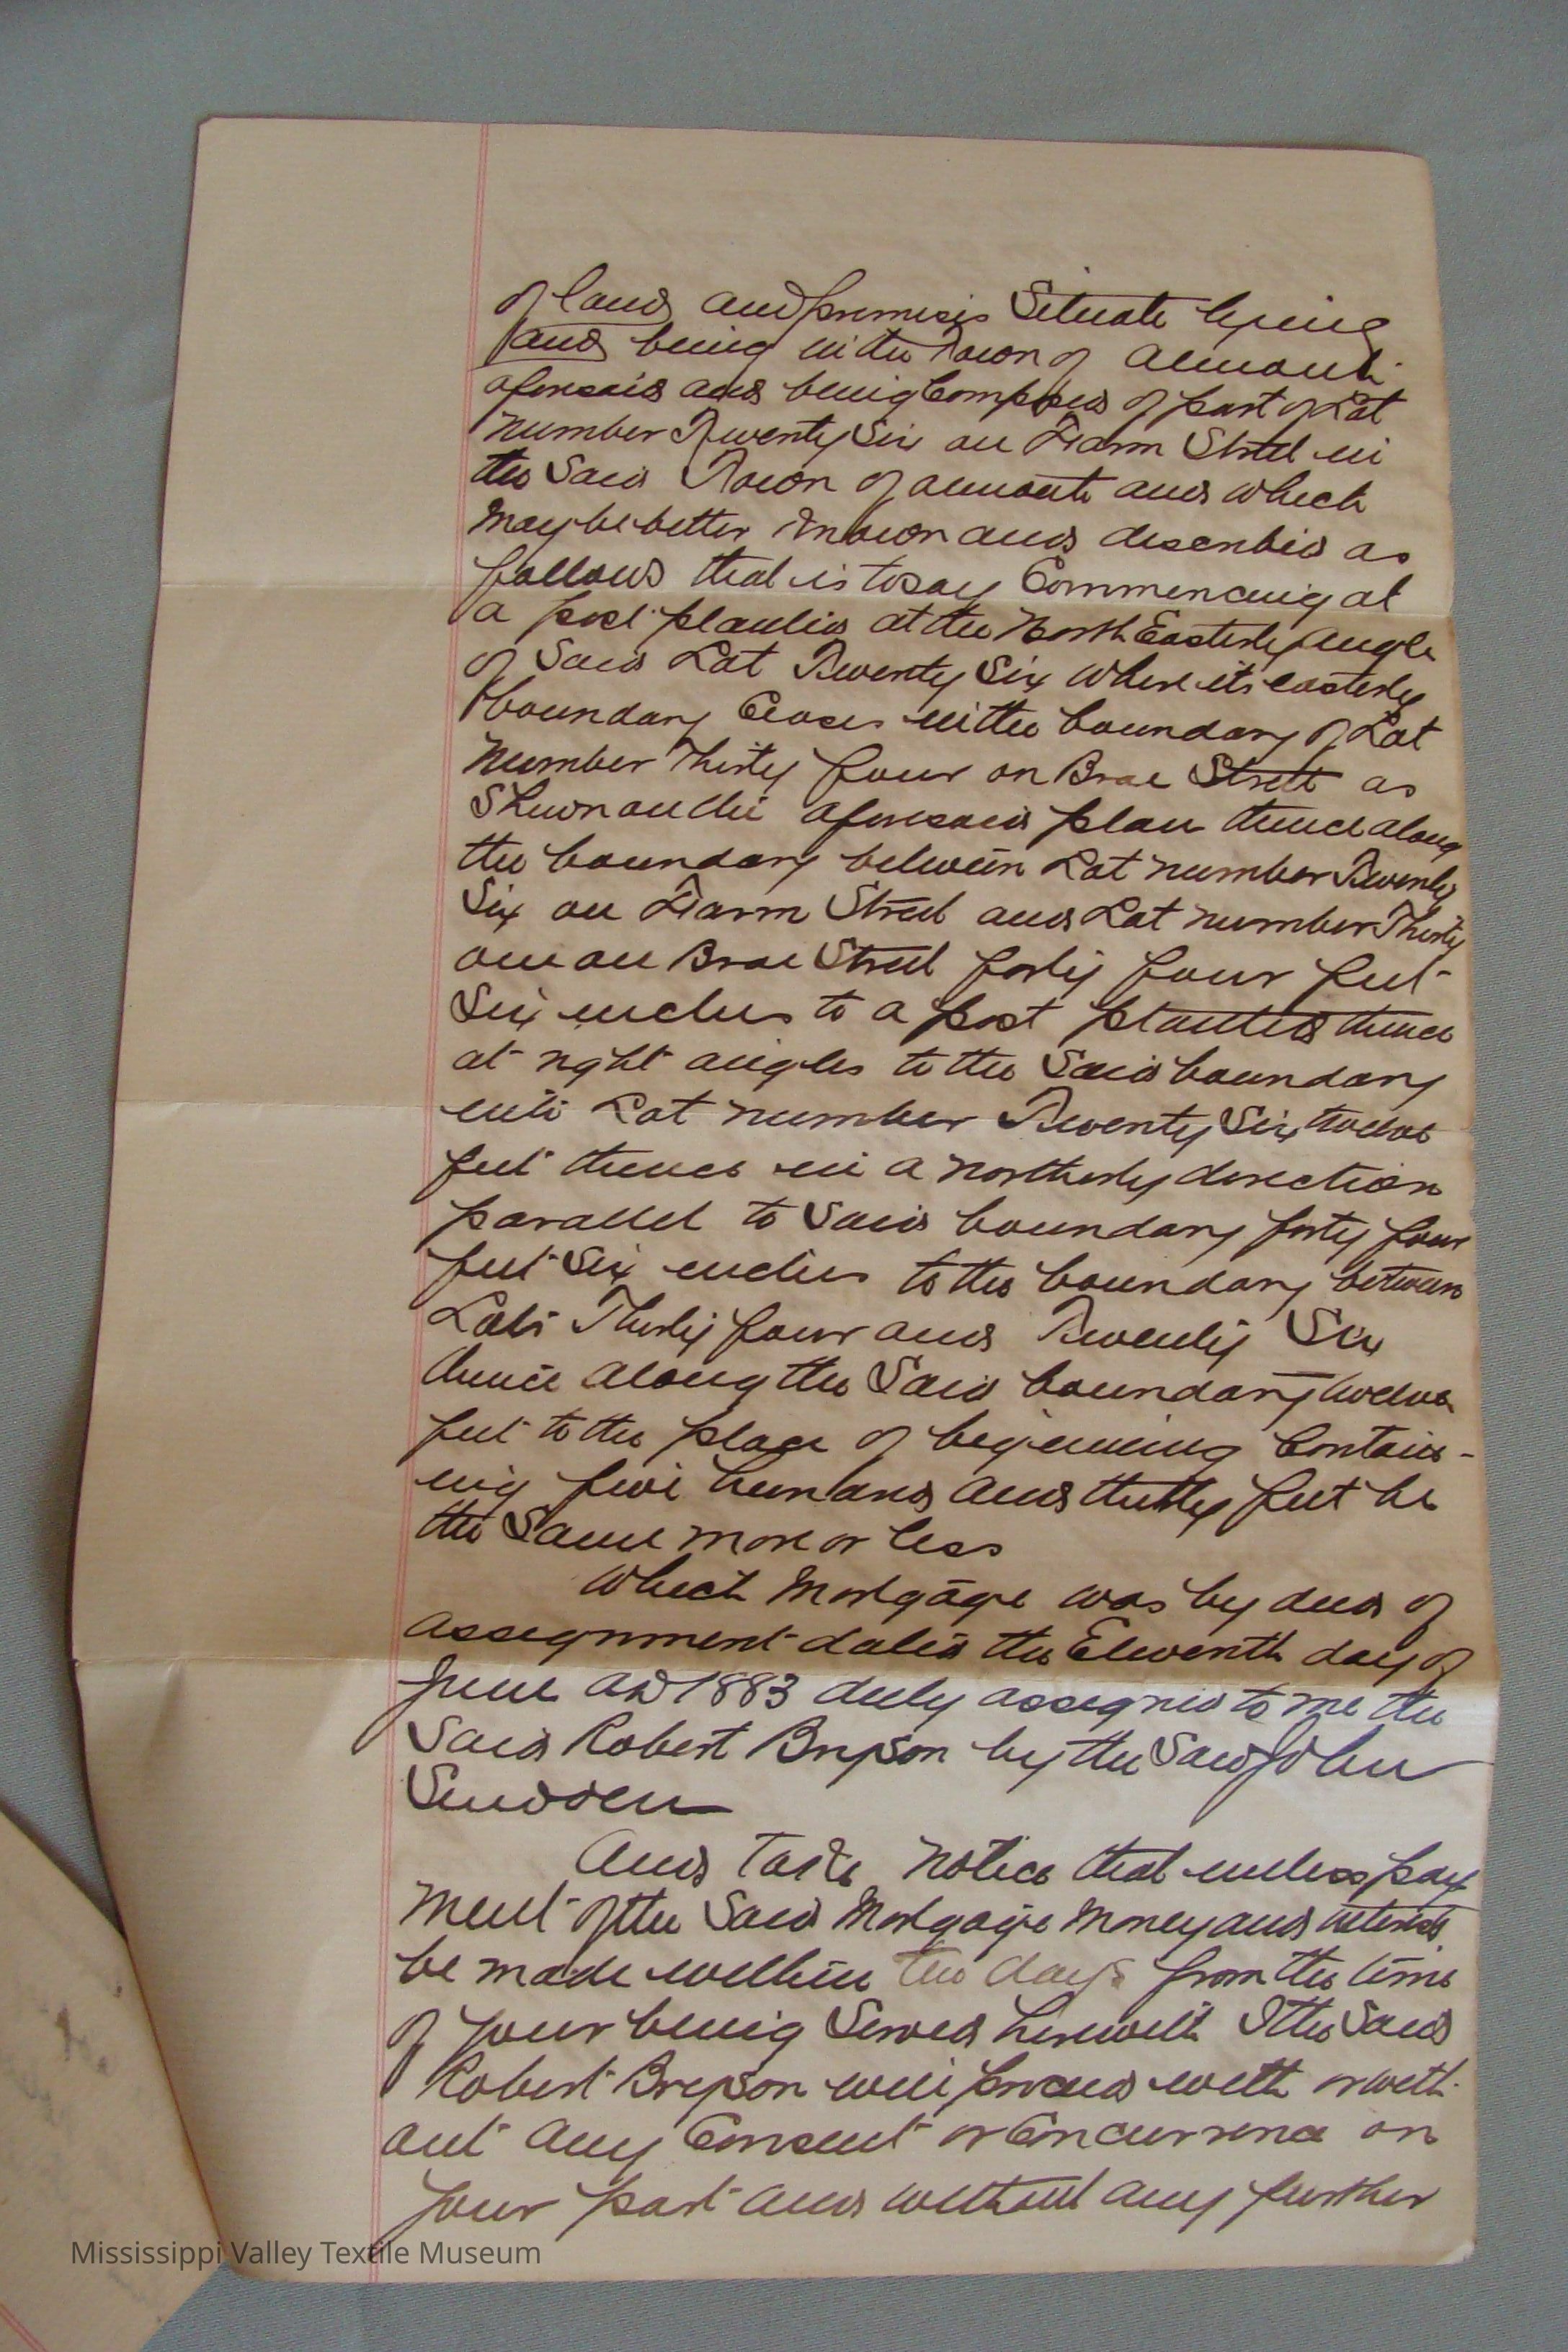 of land and premises Situate lying
and being in the Town of Almonte
aforesaid and being Composed of part of Lot
number Twenty Six on Farm Street in
the Said Town of almonte and which
may be better Known and described as
follows that is to say Commencing at
a post planted at the North Easterly Angle
of Said Lot Twenty Six where its easterly
boundary Closes in the boundary of Lot
number Thirty four on Brae Street as
Shewn on the aforesaid plan thence along
the boundary between Lot number Twenty
Six on Farm Street and Lot number Thirty
one on Brae Street forty four feet
Six inches to a post planted thence
at right angles to the Said boundary
into Lot number Twenty Six twelve
feet thence in a northerly direction
parallel to Said boundary forty four
feet Six inches to the boundary between
Lots Thirty four and Twenty Six
thence along the Said boundary twelve
feet to the place of beginning Contain-
ing five hundred and thirty feet be
the Same more or less
Which Mortgage was by deed of
assignment dated the Eleventh day of
June AD 1883 duly assigned to me the
Said Robert Bryson by the Said John
Snedden
And Take Notice that unless pay
ment of the Said Mortgage money and interest
be made within ten days from the time
of your being Served herewith I the Said
Robert Bryson will proceed with or with
out any Consent or Concurrence on
your part and without any further
Mississippi Valley Textile Museum